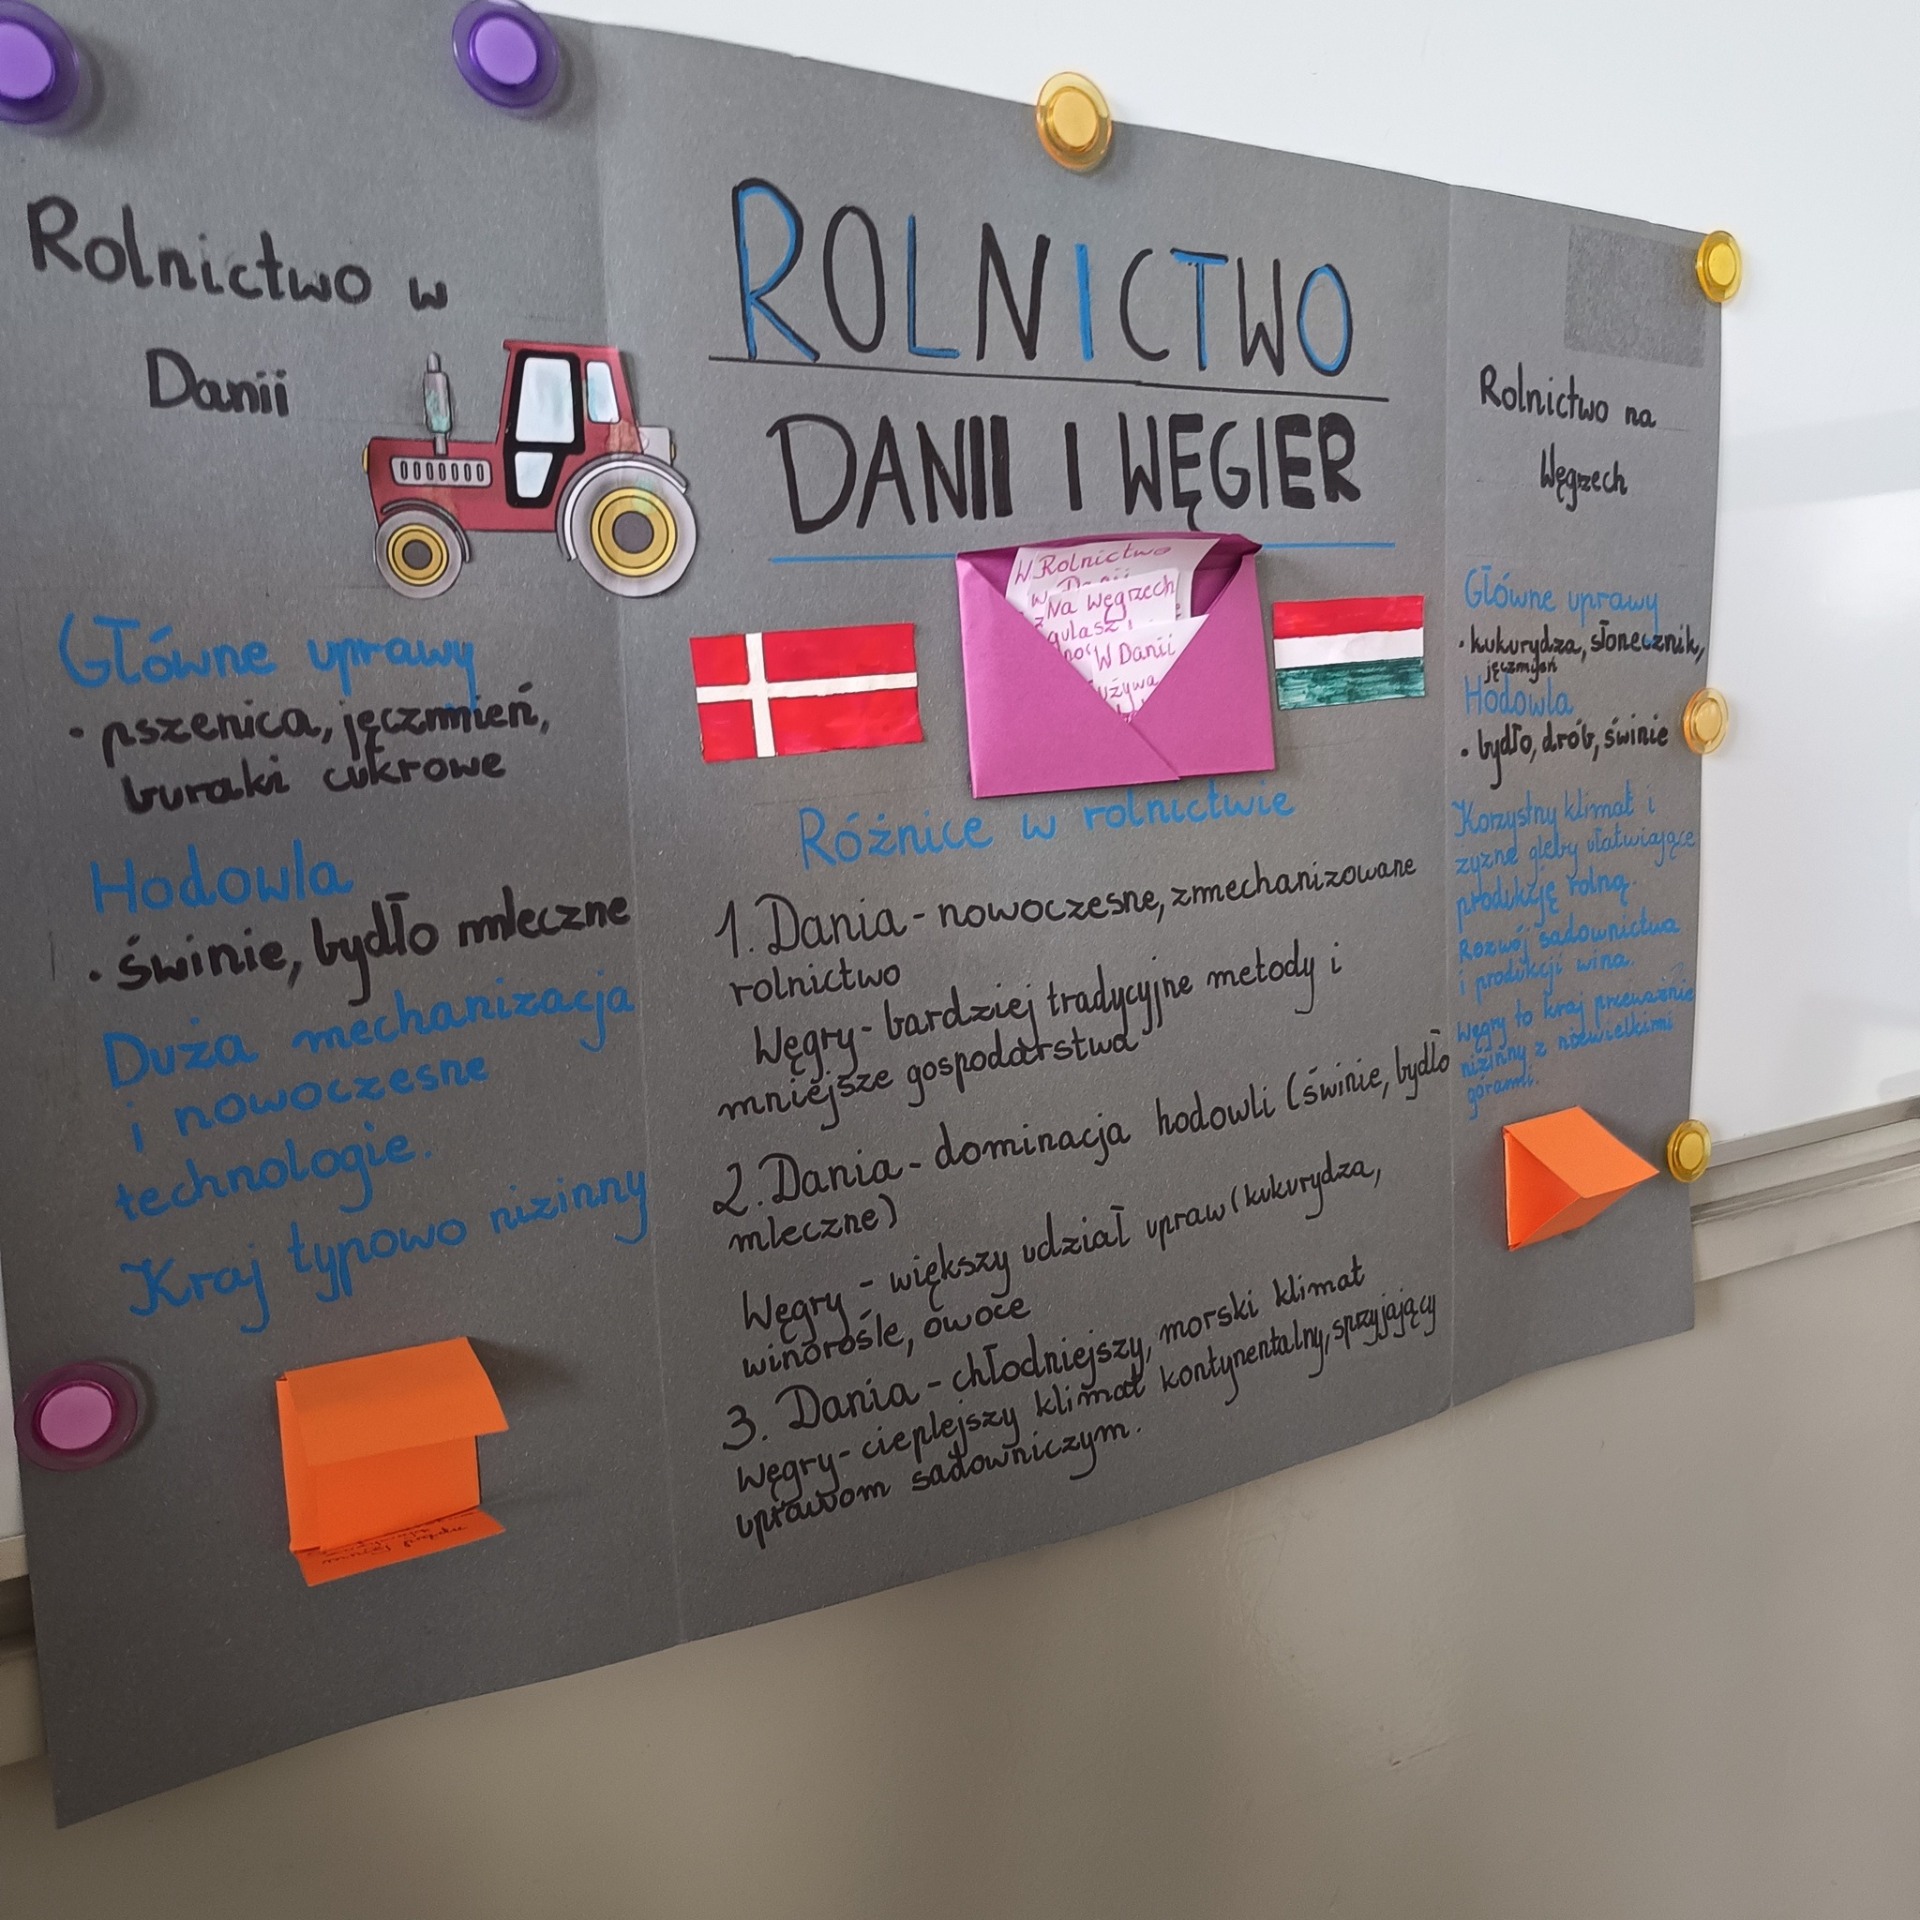 Rolnictwo w
Danii
Główne uprawy
• pszenica, jęczmień,
buraki cukrowe
Hodowla
• świnie, bydło mleczne
Duża mechanizacja
i nowoczesne
technologie.
Kraj typowo nizinny
ROLNICTWO
DANII I WĘGIER
W Rolnictwo
w Danii
Na Węgrzech
gulasz i
W Danii
używa
Różnice w rolnictwie
1. Dania - nowoczesne, zmechanizowane
rolnictwo
Węgry - bardziej tradycyjne metody i
mniejsze gospodarstwa
2. Dania - dominacja hodowli (świnie, bydło
mleczne)
Węgry - większy udział upraw (kukurydza,
winorośle, owoce
3. Dania - chłodniejszy, morski klimat
Węgry - cieplejszy klimat kontynentalny, sprzyjający
uprawom sadowniczym.
Rolnictwo na
Węgrzech
Główne uprawy
• kukurydza, słonecznik,
jęczmień
Hodowla
• bydło, drób, świnie
Korzystny klimat i
żyzne gleby ułatwiające
produkcję rolną.
Rozwój sadownictwa
i produkcji wina.
Węgry to kraj przeważnie
nizinny z niewielkimi
górami.